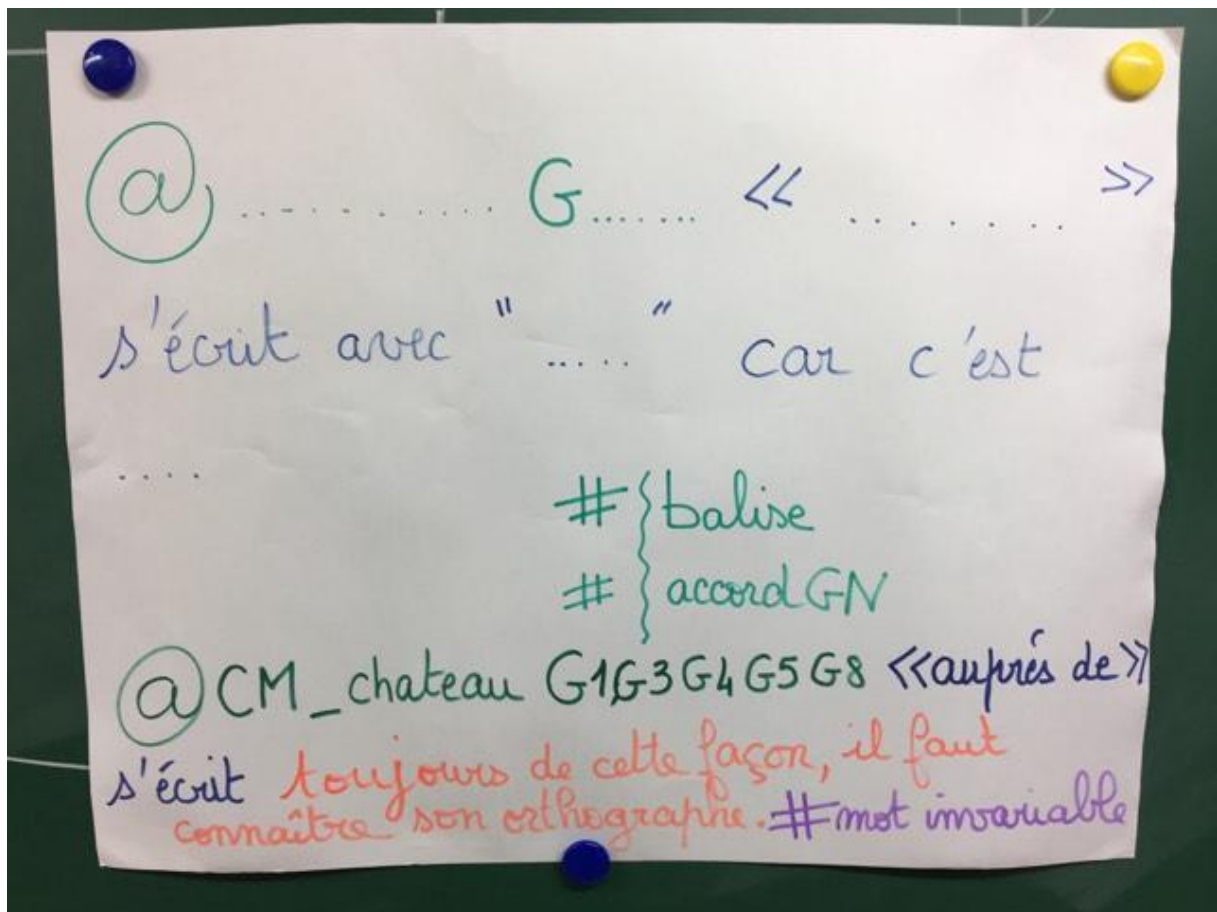 @ .............. G....... « ....... »
s'écrit avec " ..... " car c'est
....
# balise
# accord GN
@CM_chateau G1,G3 G4 G5 G8 «auprés de»
s'écrit toujours de cette façon, il faut
connaître son orthographe. #mot invariable